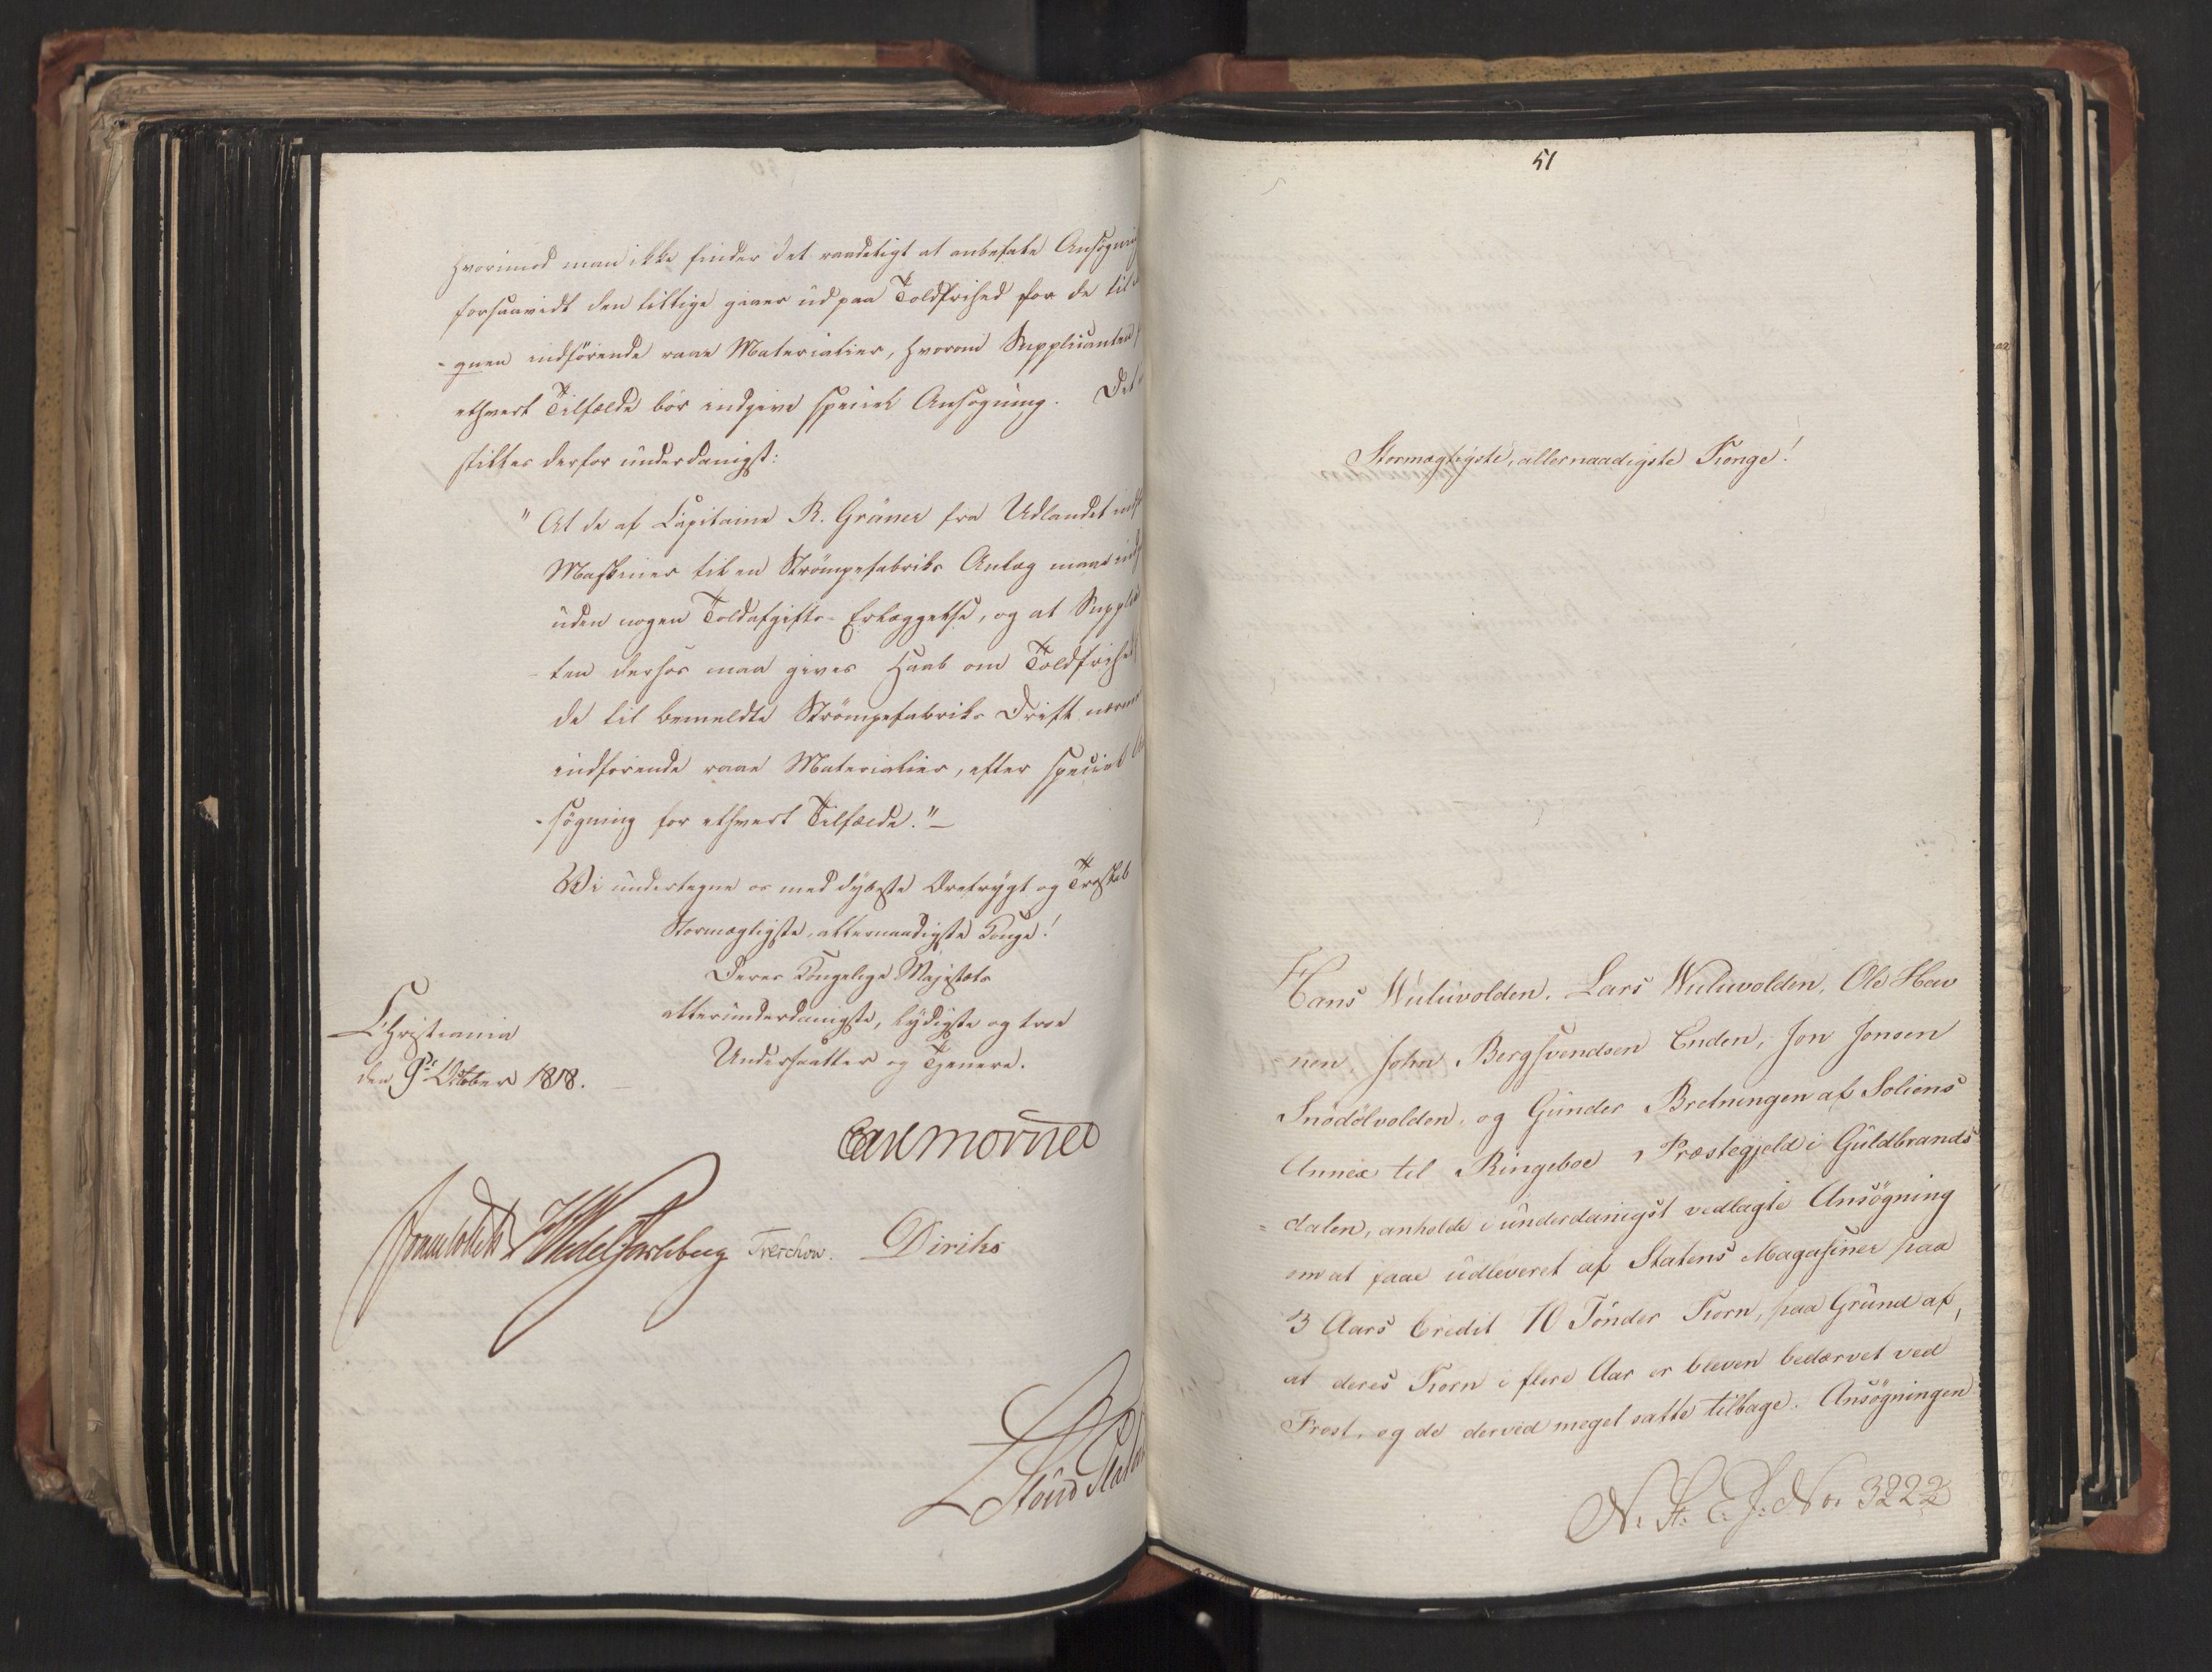 hvorimod man ikke finder det raadeligt at anbefale Ansøgnin
forsaavidt den tillige gaaer ud paa Toldfrihed for de til
-gnen indførende raae Materialier, hvorom Supplicanten
ethvert Tilfælde bør indgive speciel Ansøgning. Det
stilles derfor underdanigst:
"At de af Capitaine R. Gräner fra Udlandet indf
Maskiner til en Strømpefabriks Anlæg maae indf
uden nogen Toldafgifts-Erlæggelse, og at Supplic
-ten derhos maa gives Haab om Toldfrihed
de til bemeldte Strømpefabriks Drift
indførende raae Materialier, efter speciel
-søgning for ethvert Tilfælde."—
Vi undertegne os med dybeste Ærefrygt og Troskab
Stormægtigste, allernaadigste Konge!
Deres Kongelige Majestæts
allerunderdanigste, lydigste og troe
Undersaatter og Tjenere.
Christiania
den 9de October 1818.
Carl Mörner
HWedel Jarlsberg Treschow. Diriks
51
Stormægtigste, allernaadigste Konge!
Hans Wuluvolden, Lars Wuluvolden, Ole Hau
nen John Bergsvendsen Enden, Jon Jonsen
Snødølvolden, og Gunder Bretningen af Soliens
Annex til Ringeboe Præstegjeld i Guldbrands
= dalen, anholde i underdanigst vedlagte Ansøgning
om at faae udleveret af Statens Magasiner paa
3 Aars Credit 10 Tønder Korn, paa Grund af,
at deres Korn i flere Aar er bleven bedærvet ved
Frost, og de derved meget satte tilbage. Ansøgningen
N. St. E. J. No. 3222